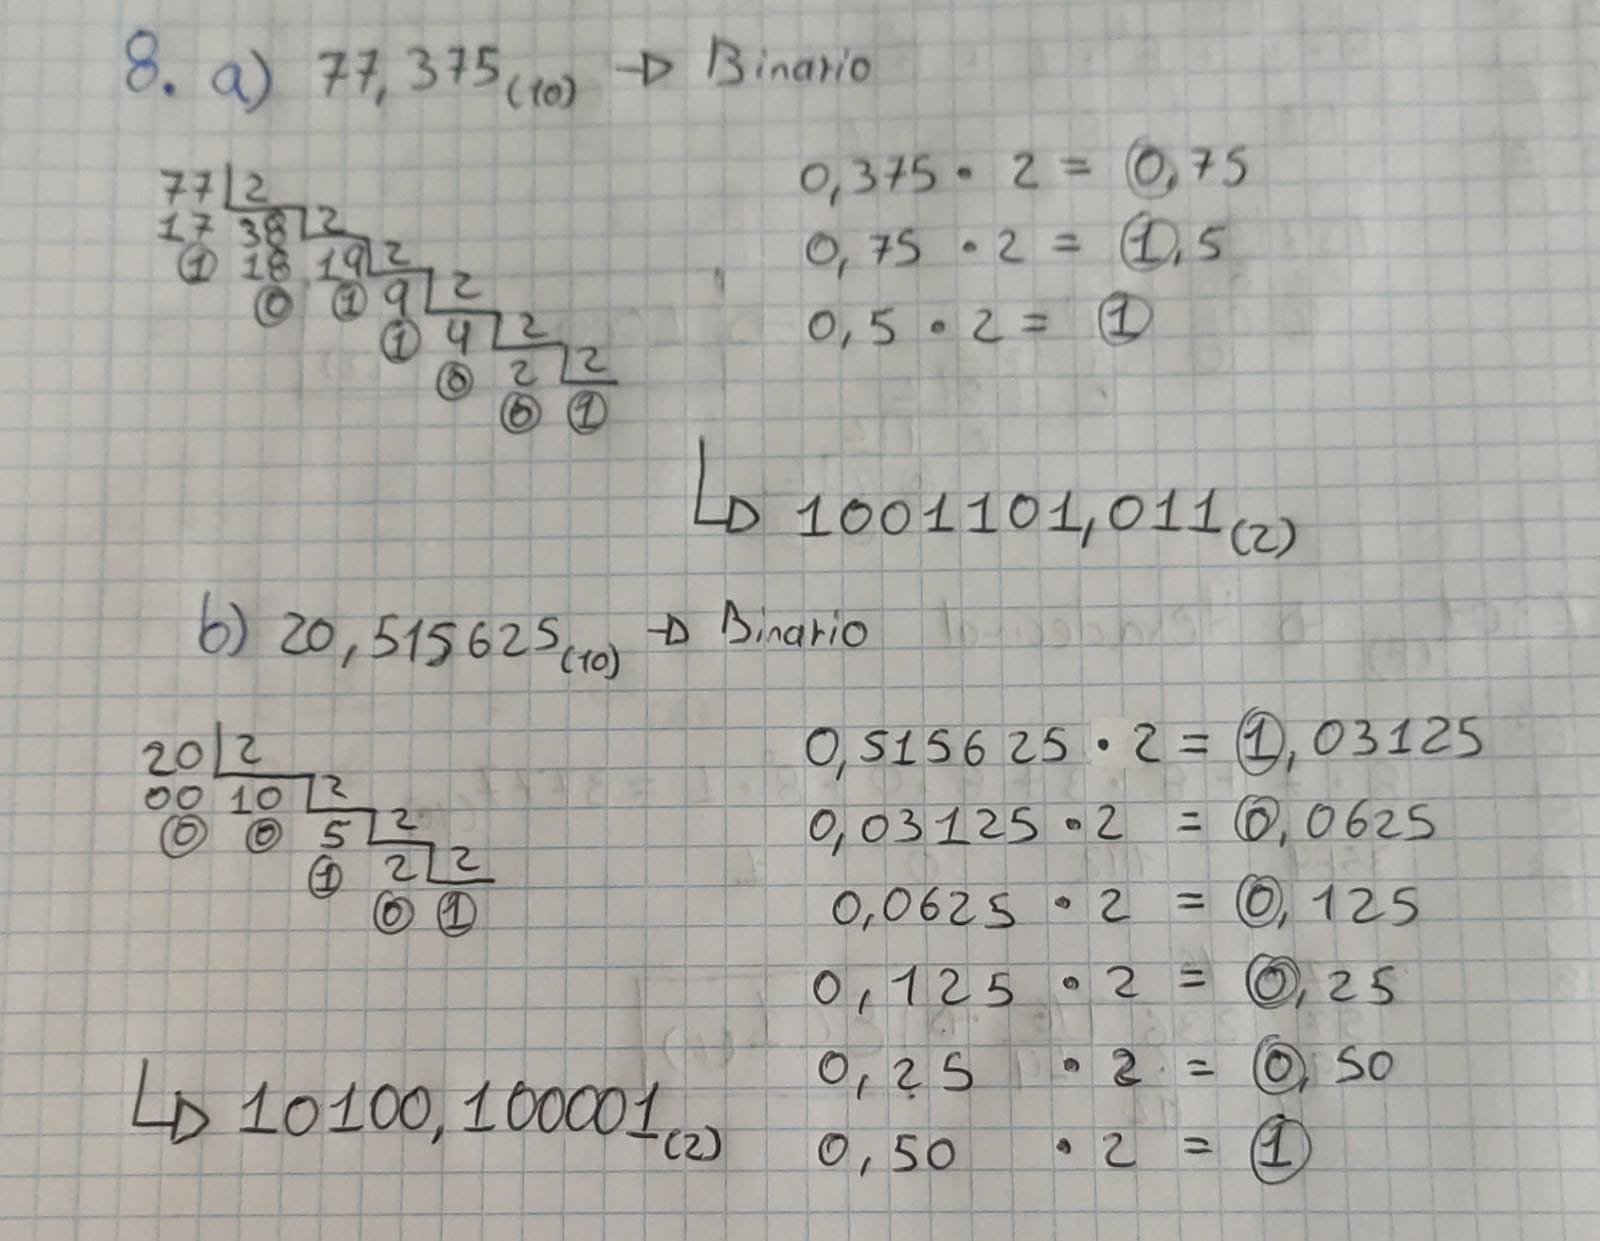 8. a) 77,375(10) → Binario
77 | 2
17 38 | 2
1 18 19 | 2
0 1 9 | 2
1 4 | 2
0 2 | 2
0 1
0,375 · 2 = 0,75
0,75 · 2 = 1,5
0,5 · 2 = 1
↳ 1001101,011(2)
b) 20,515625(10) → Binario
20 | 2
00 10 | 2
0 0 5 | 2
1 2 | 2
0 1
0,515625 · 2 = 1,03125
0,03125 · 2 = 0,0625
0,0625 · 2 = 0,125
0,125 · 2 = 0,25
0,25 · 2 = 0,50
0,50 · 2 = 1
↳ 10100,100001(2)